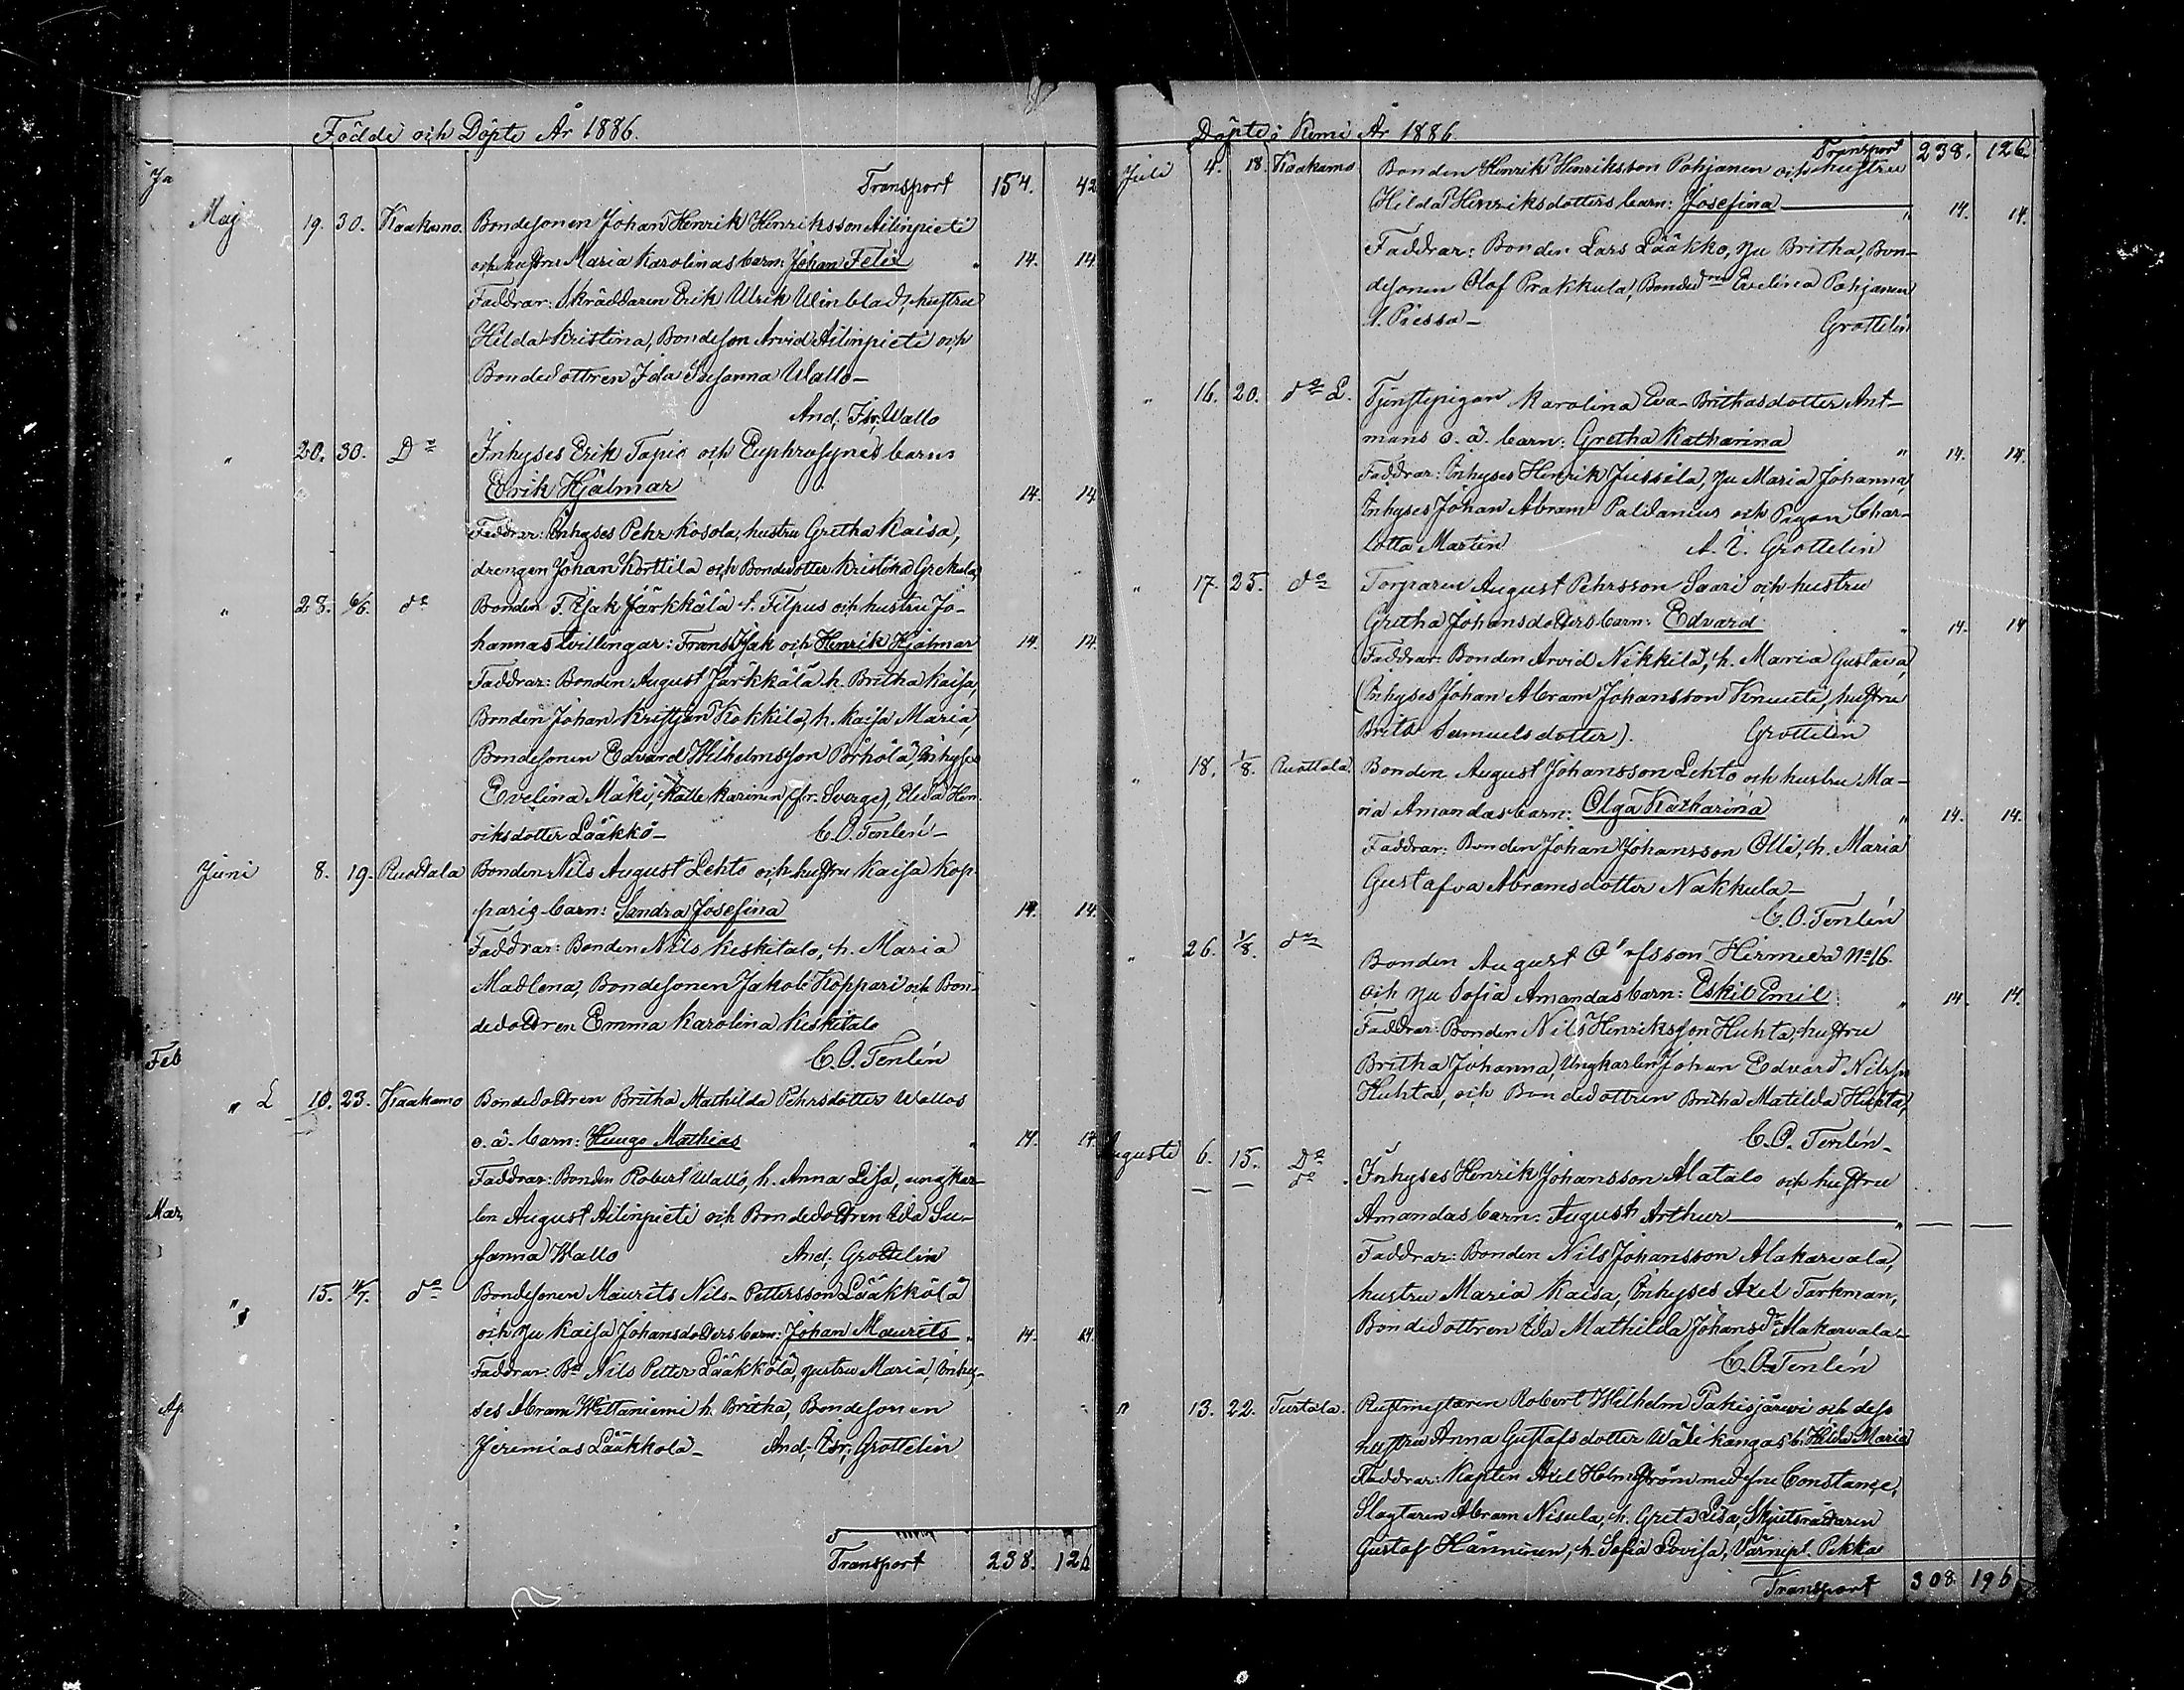 Födde och Döpte År 1886.
Transport 154. 42
Maj 19. 30. Kaakamo. Bondesonen Johan Henrik Henriksson Ailinpieti
och hustru Maria Karolinas barn: Johan Felix " 14. 14
Faddrar: Skräddaren Erik Ulrik Winblad, hustru
Hilda Kristina, Bondeson Arvid Ailinpieti och
Bondedottren Ida Susanna Wallo-
And. Isr. Wallo
" 20. 30. Do Inhyses Erik Tapio och Euphrosynes barn
Erik Hjalmar 14. 14
Faddrar: Inhyses Pehr Kosola, hustru Gretha Kaisa,
drengen Johan Korttila och Bondedotter Kristina Grekula
" 28. 6/6. do Bonden F. Isak Järkkälä f. Filpus och hustru Jo-
hannas tvillingar: Frans Isak och Henrik Hjalmar 14. 14.
Faddrar: Bonden August Järkkälä h. Britha Kaisa,
Bonden Johan Kristjan Kokkila, h. Kaisa Maria,
Bondesonen Edvard Wilhelmsson Pörhölä, Inhyses
Evelina Mäki, Kalle Karinen (fr. Sverge), Elida Hen
riksdotter Lääkkö- C. O. Tenlén-
Juni 8. 19. Ruottala Bonden Nils August Lehto och hustru Kaisa Kop
paris barn: Sandra Josefina 14. 14.
Faddrar: Bonden Nils Keskitalo, h. Maria
Madlena, Bondesonen Jakob Koppari och Bon-
dedottren Emma Karolina Keskitalo
C. O. Tenlén
Feb
" L 10. 23. Kaakamo Bondedottren Britha Mathilda Pehrsdotter Wallos
o. ä. barn: Huugo Mathias " 14. 14
Faddrar: Bonden Robert Wallo, h. Anna Lisa, ungkar-
len August Ailinpieti och Bondedottren Ida Su-
sanna Wallo And. Grottelin
Mar
" 15. 4/7. do Bondesonen Maurits Nils-Pettersson Lääkkölä
och hu Kaisa Johansdotters barn: Johan Maurits " 14. 14.
Faddrar: Bn Nils Petter Lääkkölä, hustru Maria, Inhy-
ses Abram Wittaniemi h. Britha, Bondesonen
Jeremias Lääkkölä- And. Isr. Grottelin
Ap
Transport 238. 126
Döpte i Kemi År 1886.
Transport 238. 126.
Juli 4. 18. Kaakamo Bonden Henrik Henriksson Pohjanen och hustru
Hilda Henriksdotters barn: Josefina " 14. 14.
Faddrar: Bonden Lars Lääkko, hu Britha, Bon-
desonen Olof Prakkula, Bonded:n Evelina Pohjanen
Grottelin
" 16. 20. do L. Tjenstepigan Karolina Eva-Brithasdotter Ant-
mans o. ä. barn: Gretha Katharina " 14. 14.
Faddrar: Inhyses Henrik Jussila, hu Maria Johanna,
Inhyses Johan Abram Palidanius och Pigan Char-
lotta Martin A. I. Grottelin
" 17. 25. do Torparen August Pehrsson Saari och hustru
Gretha Johansdotters barn: Edvard " 14. 14
Faddrar: Bonden Arvid Nikkilä, h. Maria Gustava,
(Inhyses Johan Abram Johansson Knuuti, hustru
Brita Samuelsdotter). Grottelin
" 18. 1/8. Ruottala Bonden August Johansson Lehto och hustru Ma-
ria Amandas barn: Olga Katharina " 14. 14.
Faddrar: Bonden Johan Johansson Olli, h. Maria
Gustafva Abramsdotter Nakkula-
C. O. Tenlén
" 26. 1/8. do Bonden August Hirmula No 16.
och hu Sofia Amandas barn: Eskil Emil " 14. 14.
Faddrar: Bonden Nils Henriksson Huhta, hustru
Britha Johanna, Ungkarlen Johan Edvard Nilsson
Huhta, och Bondedottren Britha Matilda Huhta,
C. O. Tenlén-
Augusti 6. 15. Do Inhyses Henrik Johansson Alatalo och hustru
— — do Amandas barn: August Arthur " — —
Faddrar: Bonden Nils Johansson Alakarvala,
hustru Maria Kaisa, Inhyses Axel Tarkman,
Bondedottren Ida Mathilda Johansdr Alakarvala-
C. O. Tenlén
" 13. 22. Turtola. Rustmestaren Robert Wilhelm Pakisjärvi och dess
hustru Anna Gustafsdotter Wälikangas b. Hilda Maria
Faddrar: Kapten Axel Holmström med fru Constance,
Slagtaren Abram Nisula, h. Greta Lisa, Skjutsrättaren
Gustaf Hänninen, h. Sofia Lovisa, Värnepl. Pekka
Transport 308. 196